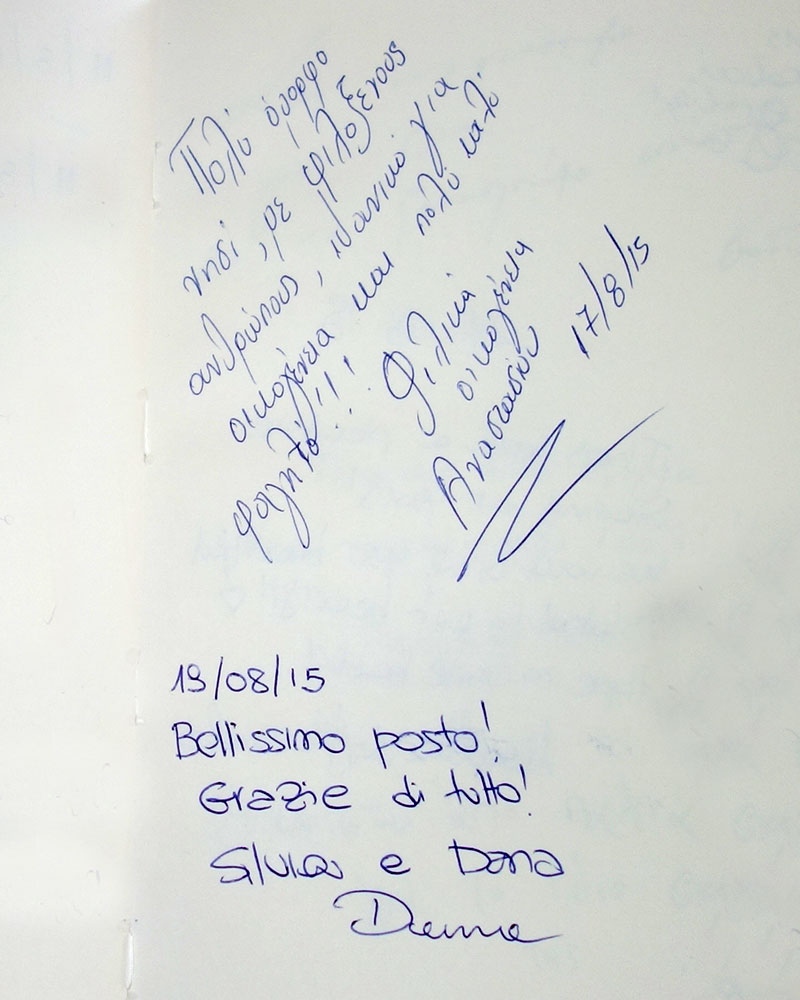 Πολύ όμορφο
νησί, με φιλόξενους
ανθρώπους, ιδανικό για
οικογένεια και πολύ καλό
φαγητό!!!
Φιλικά
οικογένεια
Αναστασίου
17/8/15
19/08/15
Bellissimo posto!
Grazie di tutto!
Silvia e Dana